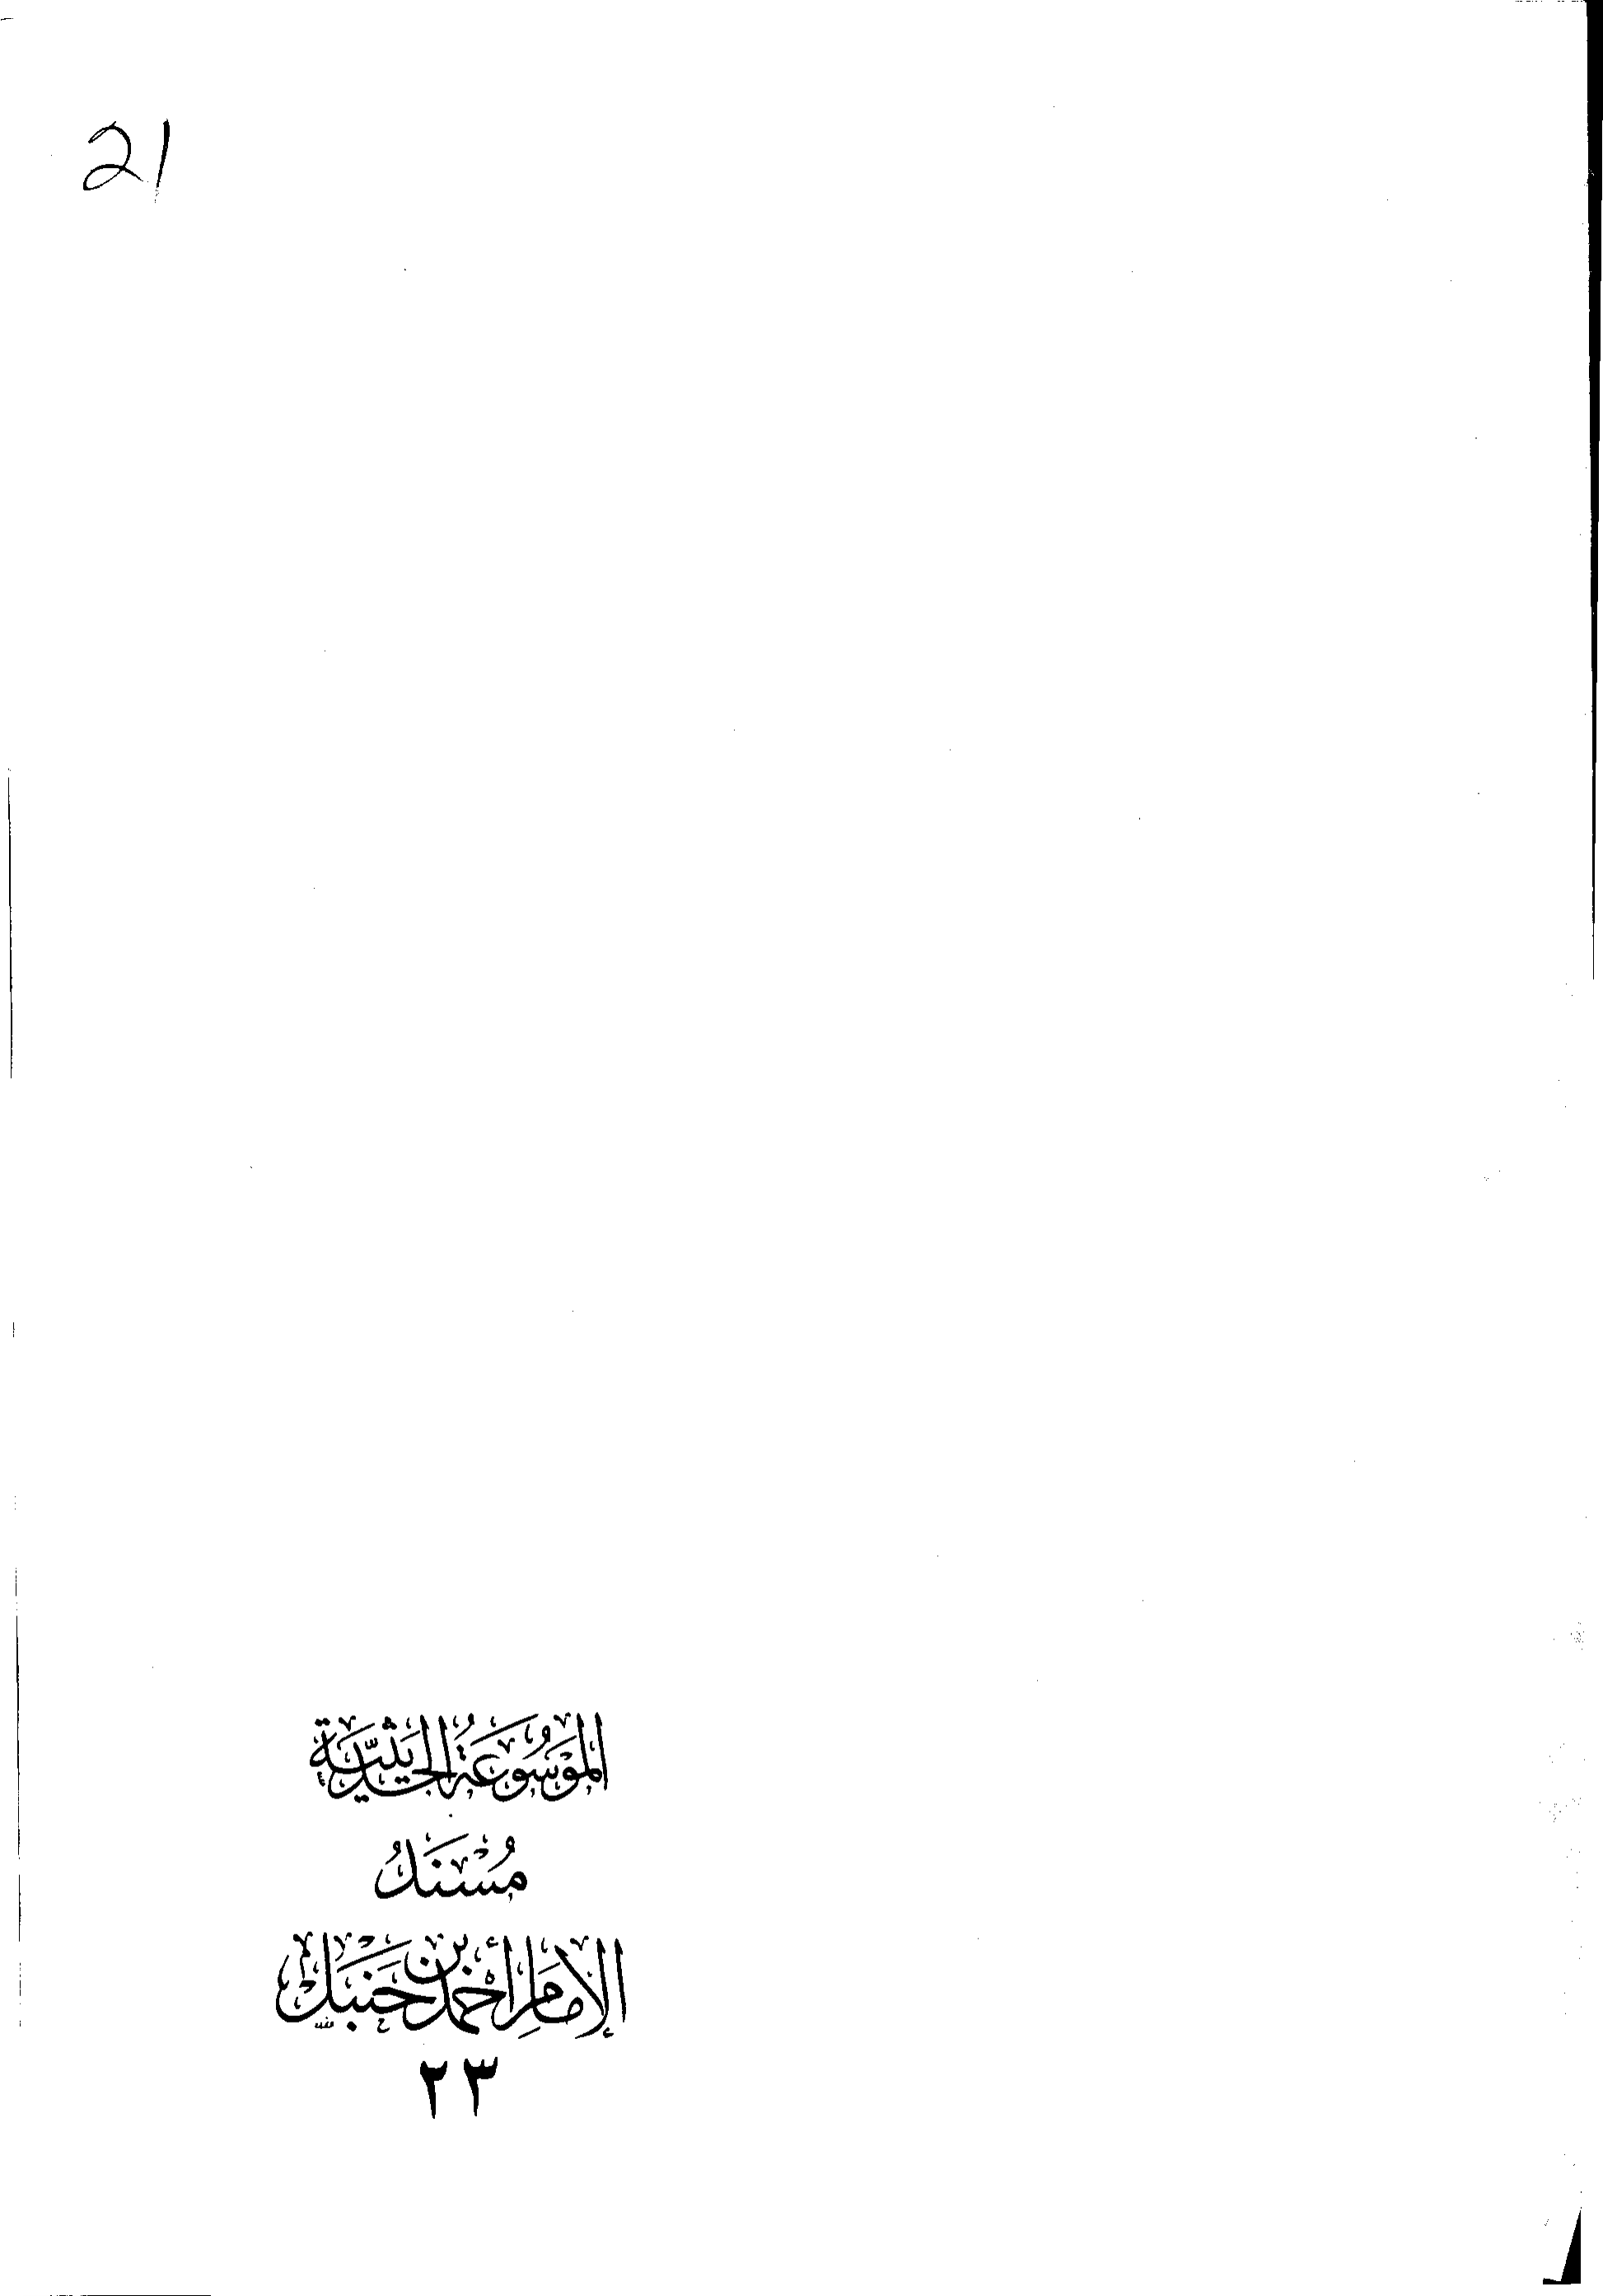 21
الموسوعة الحديثية
مسند
الإمام أحمد بن حنبل
٢٣